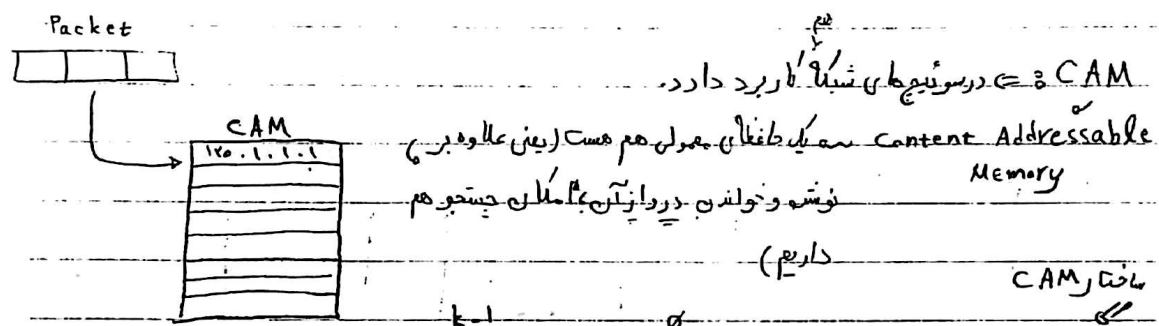 Packet
CAM : => در سوئیچ‌های شبکه کاربرد دارد.
CAM
Content Addressable Memory → یک حافظه‌ی معمولی هم هست (یعنی علاوه بر
۱۲۰.۱.۱.۱
نوشتن و خواندن در و از آن امکان جستجو هم
داریم)
ساختار CAM
k-1 0